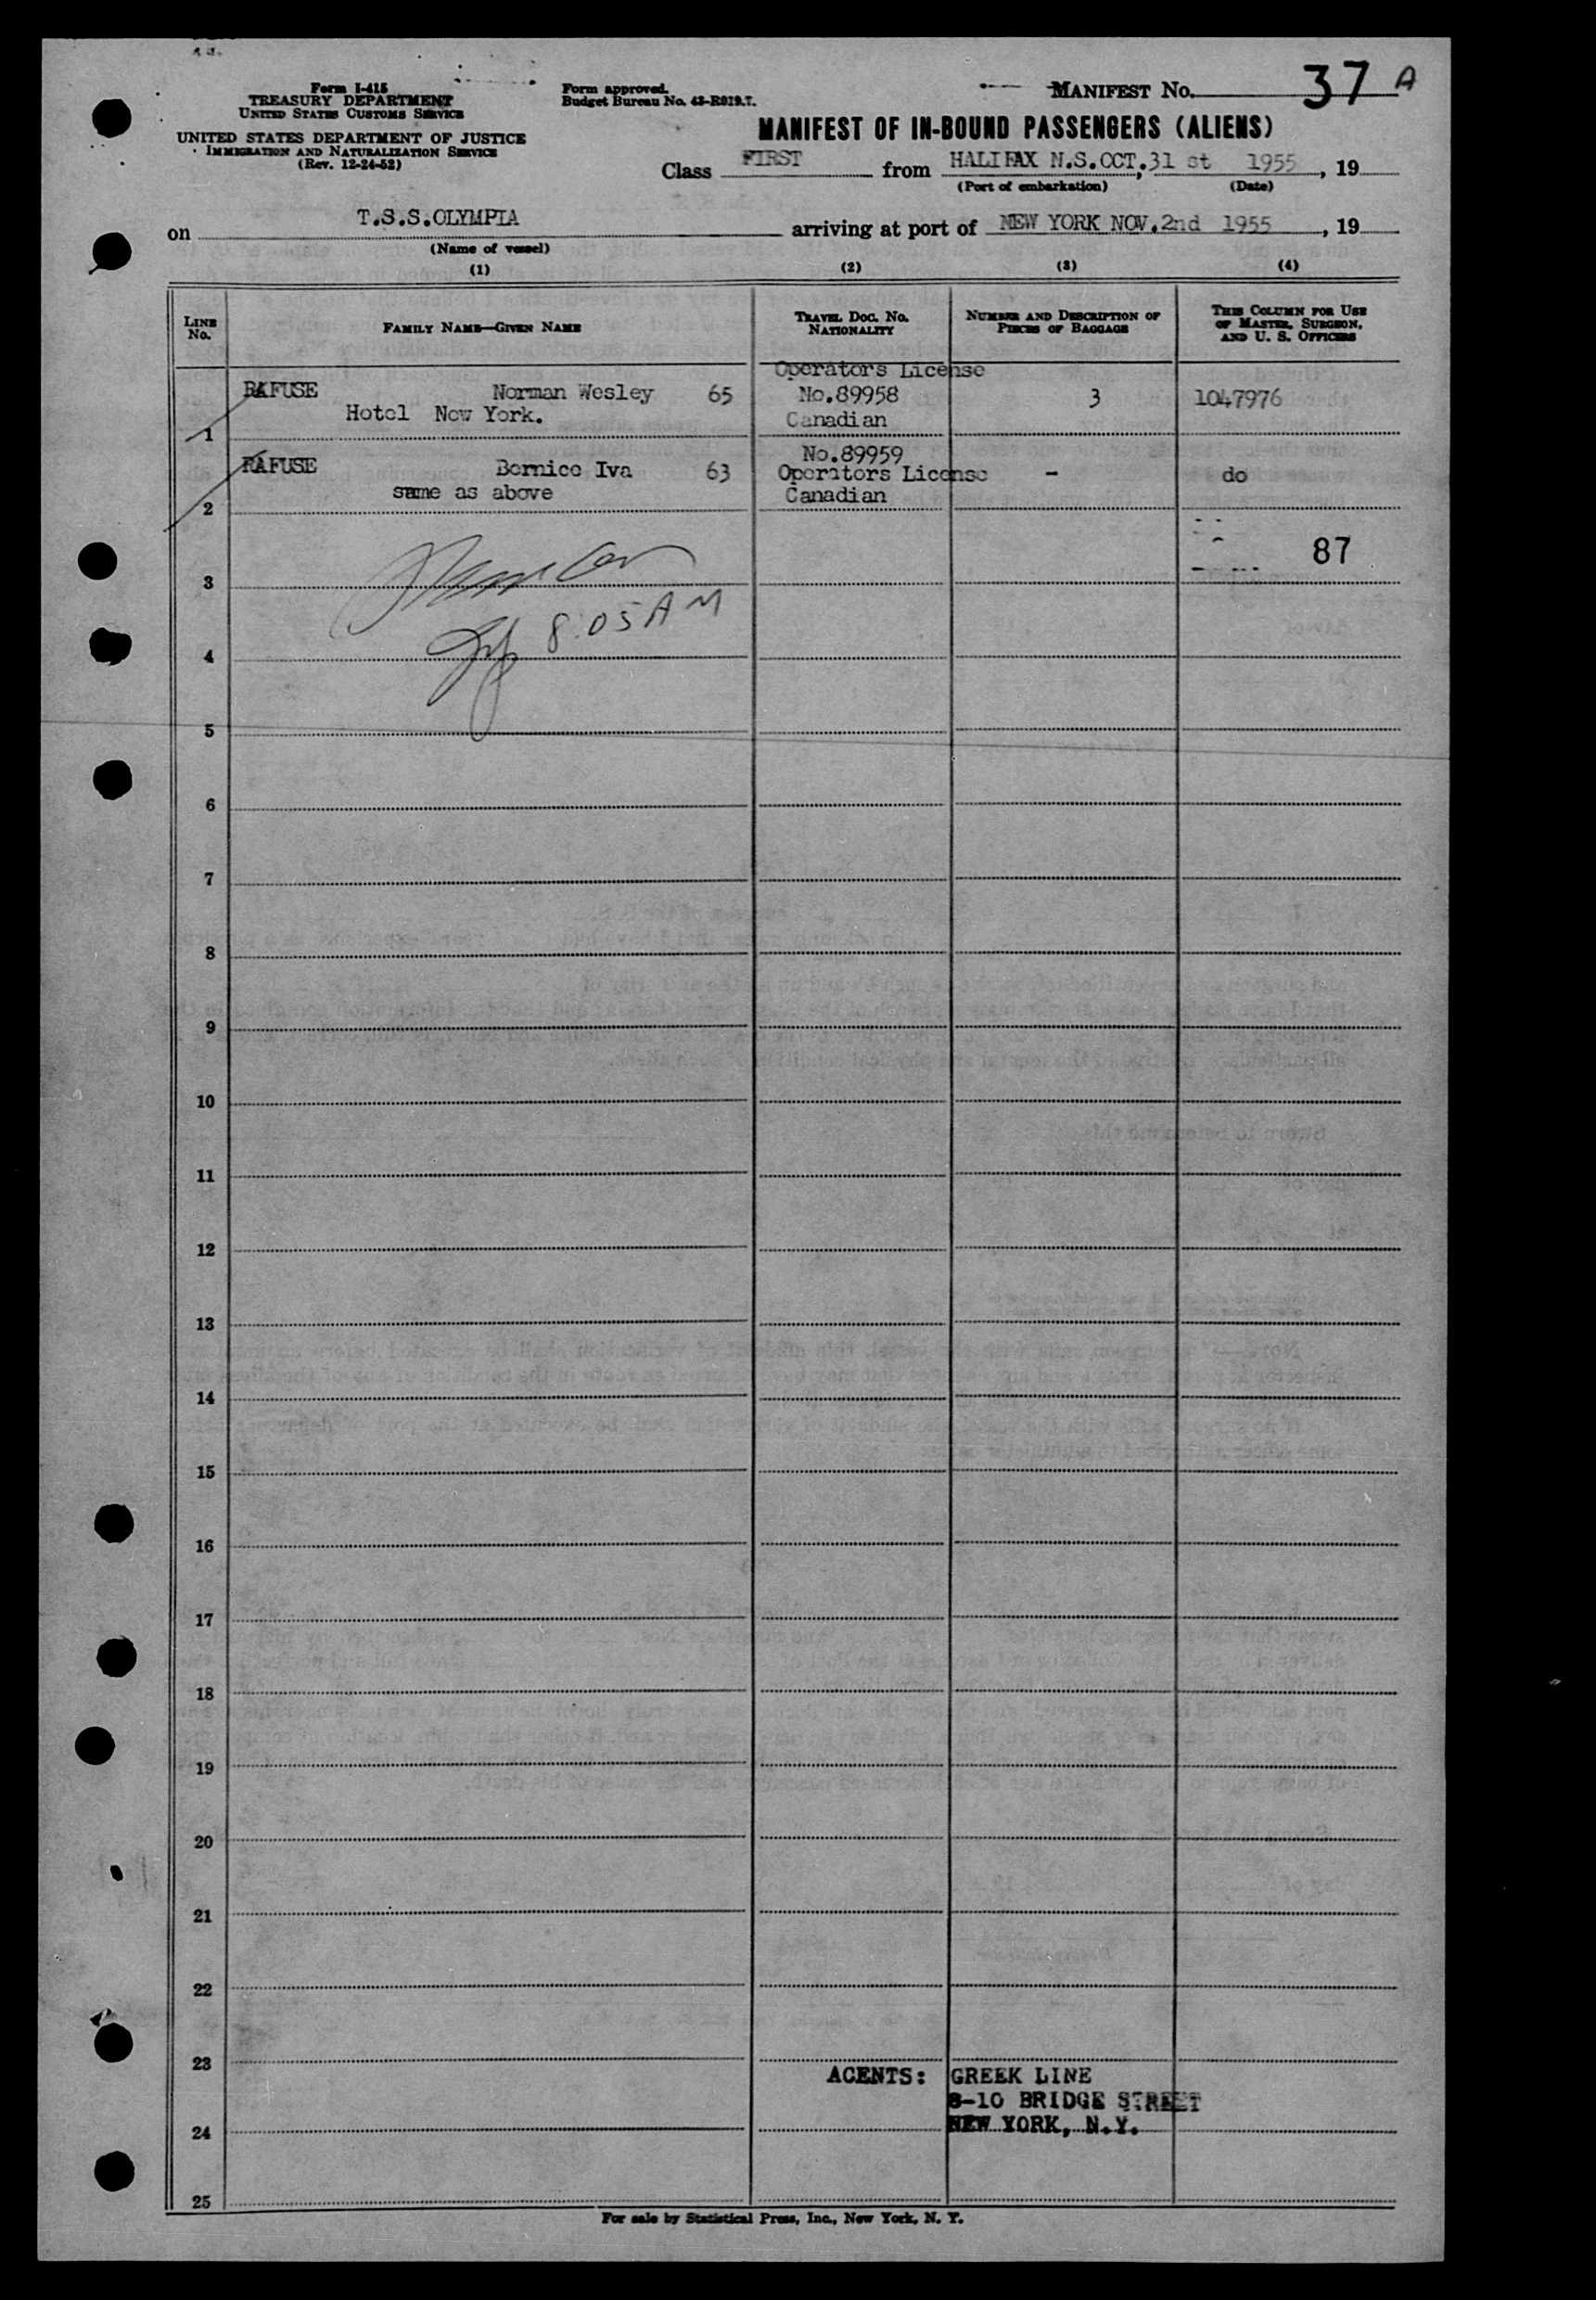 Form I-415
TREASURY DEPARTMENT
UNITED STATES CUSTOMS SERVICE
UNITED STATES DEPARTMENT OF JUSTICE
IMMIGRATION AND NATURALIZATION SERVICE
(Rev. 12-24-52)
Form approved.
Budget Bureau No. 43-R019.7.
MANIFEST No. 37 A
MANIFEST OF IN-BOUND PASSENGERS (ALIENS)
Class FIRST from HALIFAX N.S. OCT. 31 st 1955, 19
(Port of embarkation) (Date)
on T.S.S.OLYMPIA arriving at port of NEW YORK NOV.2nd 1955, 19
(Name of vessel)
(1) (2) (3) (4)
LINE No. FAMILY NAME—GIVEN NAME TRAVEL DOC. NO. NATIONALITY NUMBER AND DESCRIPTION OF PIECES OF BAGGAGE THIS COLUMN FOR USE OF MASTER, SURGEON, AND U. S. OFFICERS
Operators License
RAFUSE Norman Wesley 65 No.89958 3 1047976
Hotel New York. Canadian
1
No.89959
RAFUSE Bernice Iva 63 Operators License - do
same as above Canadian
2
87
3
8:05 AM
4
5
6
7
8
9
10
11
12
13
14
15
16
17
18
19
20
21
22
23
AGENTS: GREEK LINE
8-10 BRIDGE STREET
24 NEW YORK, N.Y.
25
For sale by Statistical Press, Inc., New York, N. Y.